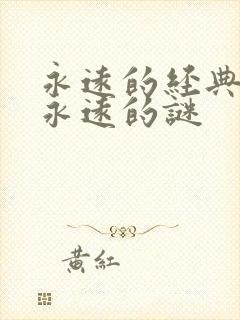 永遠的經典
永遠的謎
黃紅